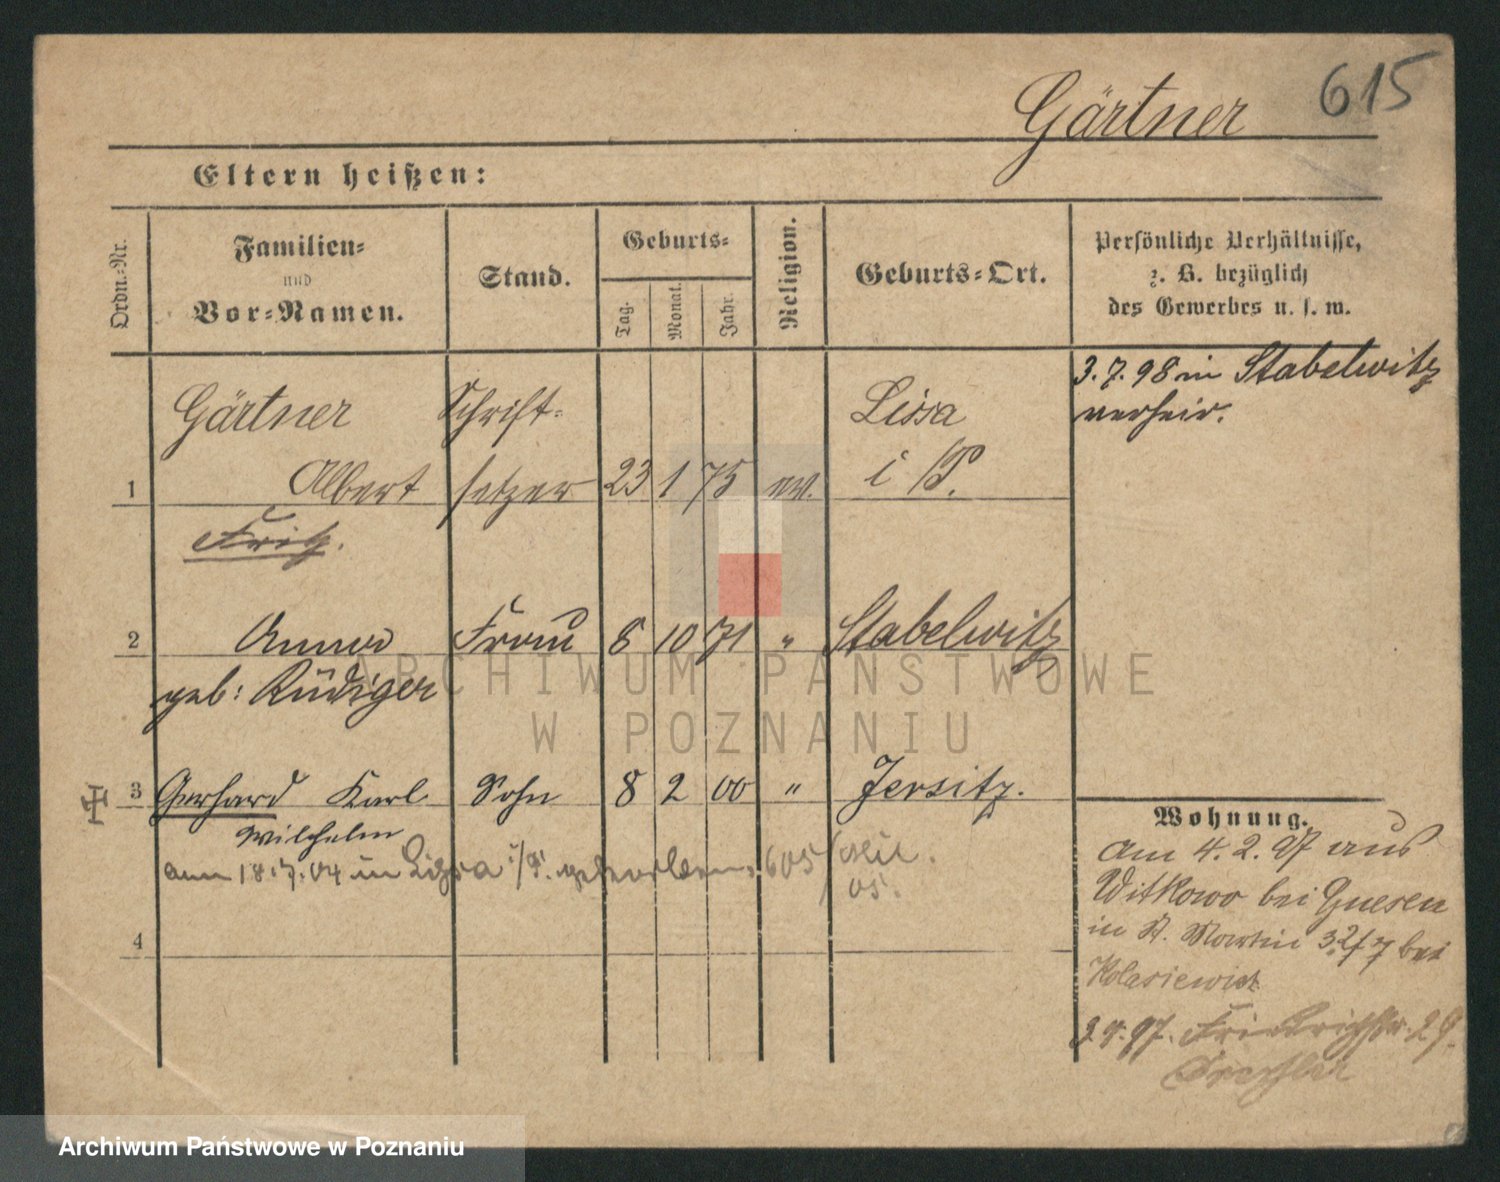 615
Gärtner
Eltern heißen:
Ordn.-Nr.
Familien-
und
Vor-Namen.
Stand.
Geburts-
Tag.
Monat.
Jahr.
Religion.
Geburts-Ort.
Persönliche Verhältnisse,
z. B. bezüglich
des Gewerbes u. s. w.
3.7.98 in Stabelwitz
verheir.
Gärtner Schrift- Lissa
1 Albert setzer 23 1 75 ev. i/P.
Fritz.
2 Anna Frau 8 10 71 " Stabelwitz
geb: Rüdiger
3 Gerhard Karl Sohn 8 2 00 " Jersitz.
Wilhelm
am 18.7.04 in Lissa i/P. gestorben, 605/
05.
4
Wohnung.
am 4.2.97 aus
Witkowo bei Gnesen
in St. Martin 32/7 bei
Kolasiewicz
97. Friedrichstr. 29.
Drechsler
ARCHIWUM PAŃSTWOWE
W POZNANIU
Archiwum Państwowe w Poznaniu